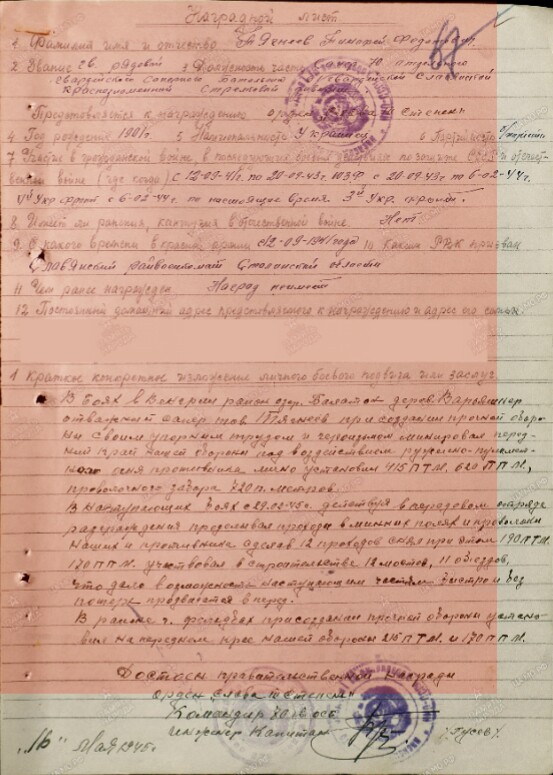 Наградной лист
1 Фамилия имя и отчество Тимофей Федорович
2 Звание гв. рядовой 3 Должность часть 70 отдельного
Гвардейский Саперный Батальон Гвардейской Славянской
Краснознаменной Стрелковой дивизии
Представляется к награждению орден Славы степени
4 Год рождения 1901г. 5 Национальность Украинец 6 Партийность
7 Участие в гражданской войне, в последующих боевых действиях по защите СССР и отечест-
венной войне (где когда) С 12-09-41г. по 20-09-43г. ЮЗФ с 20-09-43г по 6-02-44г.
IVй Укр фронт с 6-02-44г. по настоящее время 3й Укр. фронт.
8 Имеет ли ранения, контузии в отечественной войне Нет
9 С какого времени в красной армии с 12-09-1941 года 10 Каким РВК призван
Славянский райвоенкомат Сталинской области
11 Чем ранее награжден Наград не имеет
12 Постоянный домашний адрес представляемого к награждению и адрес его семьи
1 Краткое конкретное изложение личного боевого подвига или заслуг
В боях в Венгрии район озер. Балатон дерев.
отважный сапер тов при создании прочной оборо-
ны своим упорным трудом и героизмом минировал перед-
ний край нашей обороны под воздействием ружейно-пулемет-
ного огня противника лично установил 415 ПТМ. 620 ППМ.,
проволочного забора 720 п. метров.
В наступающих боях с действуя в передовом отряде
разграждения проделывал проходы в минных полях и проволоки
наших и противника сделав 12 проходов сняв при этом 190 ПТМ.
170 ППМ. Участвовал в строительстве 12 мостов, 11 объездов,
что дало возможность наступающим частям быстро и без
потерь продвигатся вперед.
В районе г. при создании прочной обороны устано-
вил на переднем крае нашей обороны 215 ПТМ. и 170 ППМ.
Достоин правительственной награды
орден Слава степени
Командир 70 гв осб
инженер Капитан /Гусев/
"16" Мая 1945г.